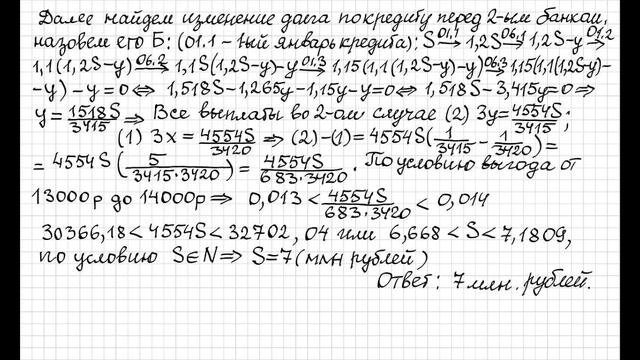 Далее найдем изменение долга по кредиту перед 2-ым банком,
назовем его Б: (01.1 – 1ый январь кредита): S →01.1 1,2S →06.1 1,2S-y →01.2
1,1(1,2S-y) →06.2 1,1S(1,2S-y)-y →01.3 1,15(1,1(1,2S-y)-y) →06.3 1,15(1,1(1,2S-y)-
-y)-y=0 ⇔ 1,518S-1,265y-1,15y-y=0 ⇔ 1,518S-3,415y=0 ⇒
y = 1518S/3415 ⇒ Все выплаты во 2-ом случае (2) 3y = 4554S/3415;
(1) 3x = 4554S/3420 ⇒ (2)-(1) = 4554S(1/3415 - 1/3420) =
= 4554S(5/3415·3420) = 4554S/683·3420. По условию выгода от
13000р до 14000р ⇒ 0,013 < 4554S/683·3420 < 0,014
30366,18 < 4554S < 32702,04 или 6,668 < S < 7,1809,
по условию S∈N ⇒ S=7 (млн рублей)
Ответ: 7 млн. рублей.